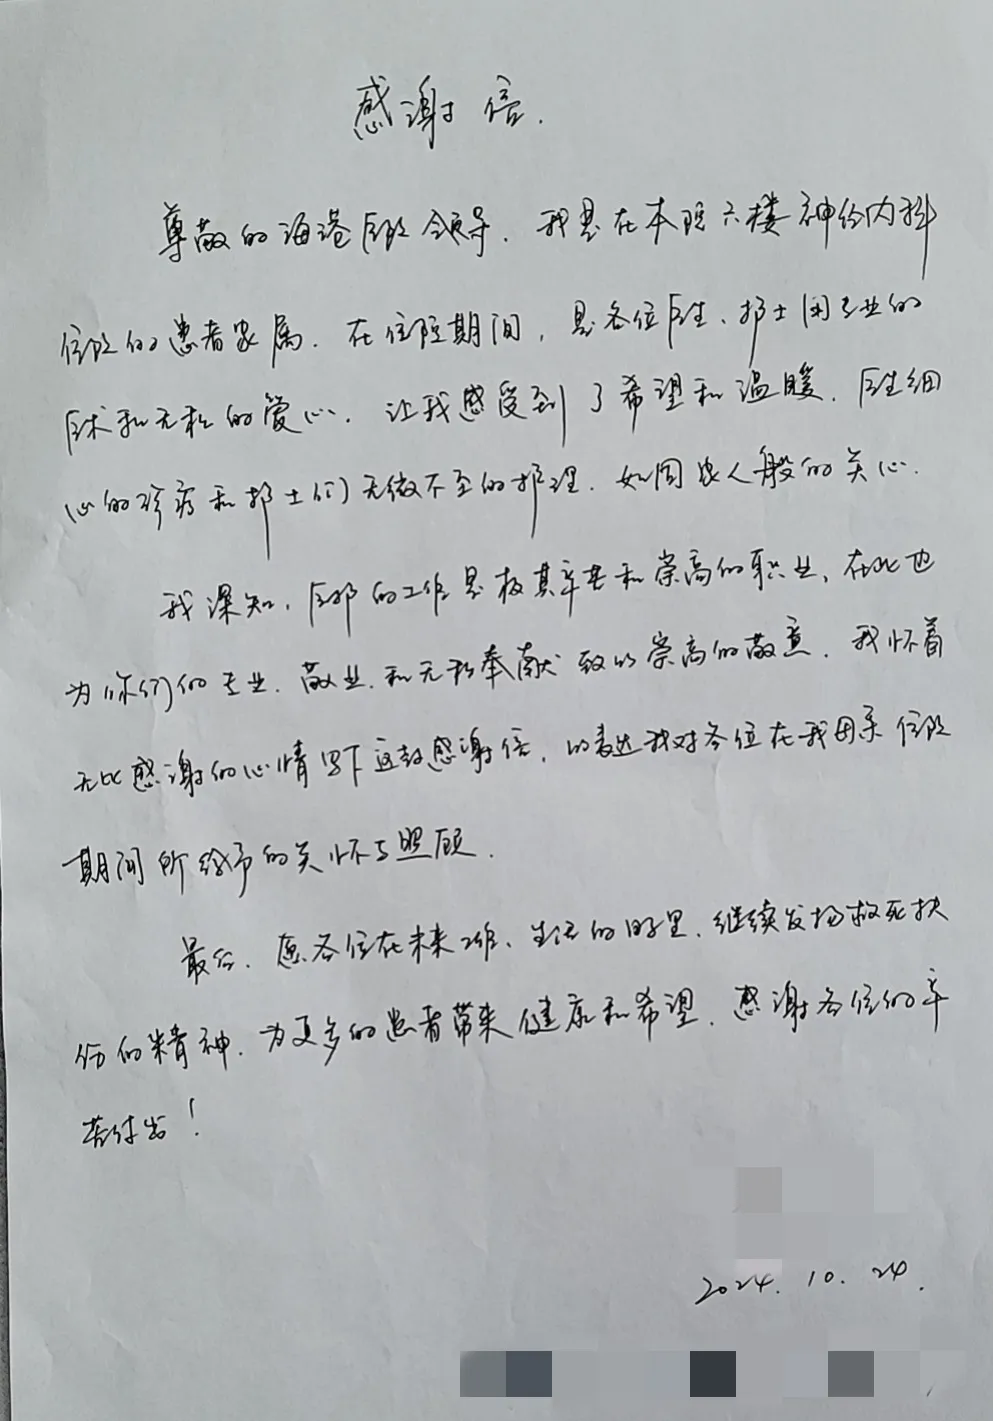 感谢信.
尊敬的海港医院领导、我是在本院六楼神经内科
住院的患者家属、在住院期间,是各位医生、护士用专业的
医术和无私的爱心、让我感受到了希望和温暖、医生细
心的诊疗和护士们无微不至的护理、如同家人般的关心、
我深知、医护的工作是极其辛苦和崇高的职业、在此也
为你们的专业、敬业、和无私奉献致以崇高的敬意、我怀着
无比感谢的心情写下这封感谢信、以表达我对各位在我母亲住院
期间所给予的关怀与照顾.
最后、愿各位在未来工作、生活的日子里、继续发扬救死扶
伤的精神、为更多的患者带来健康和希望、感谢各位的辛
苦付出!
2024.10.24.